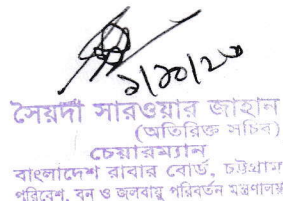 ১/১০/২৩
সৈয়দা সারওয়ার জাহান
(অতিরিক্ত সচিব)
চেয়ারম্যান
বাংলাদেশ রাবার বোর্ড, চট্টগ্রাম
পরিবেশ, বন ও জলবায়ু পরিবর্তন মন্ত্রণালয়